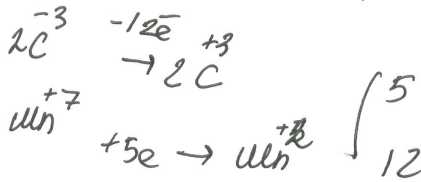 2C⁻³ -12ē → 2C⁺³ | 5
Mn⁺⁷ +5e → Mn⁺² | 12